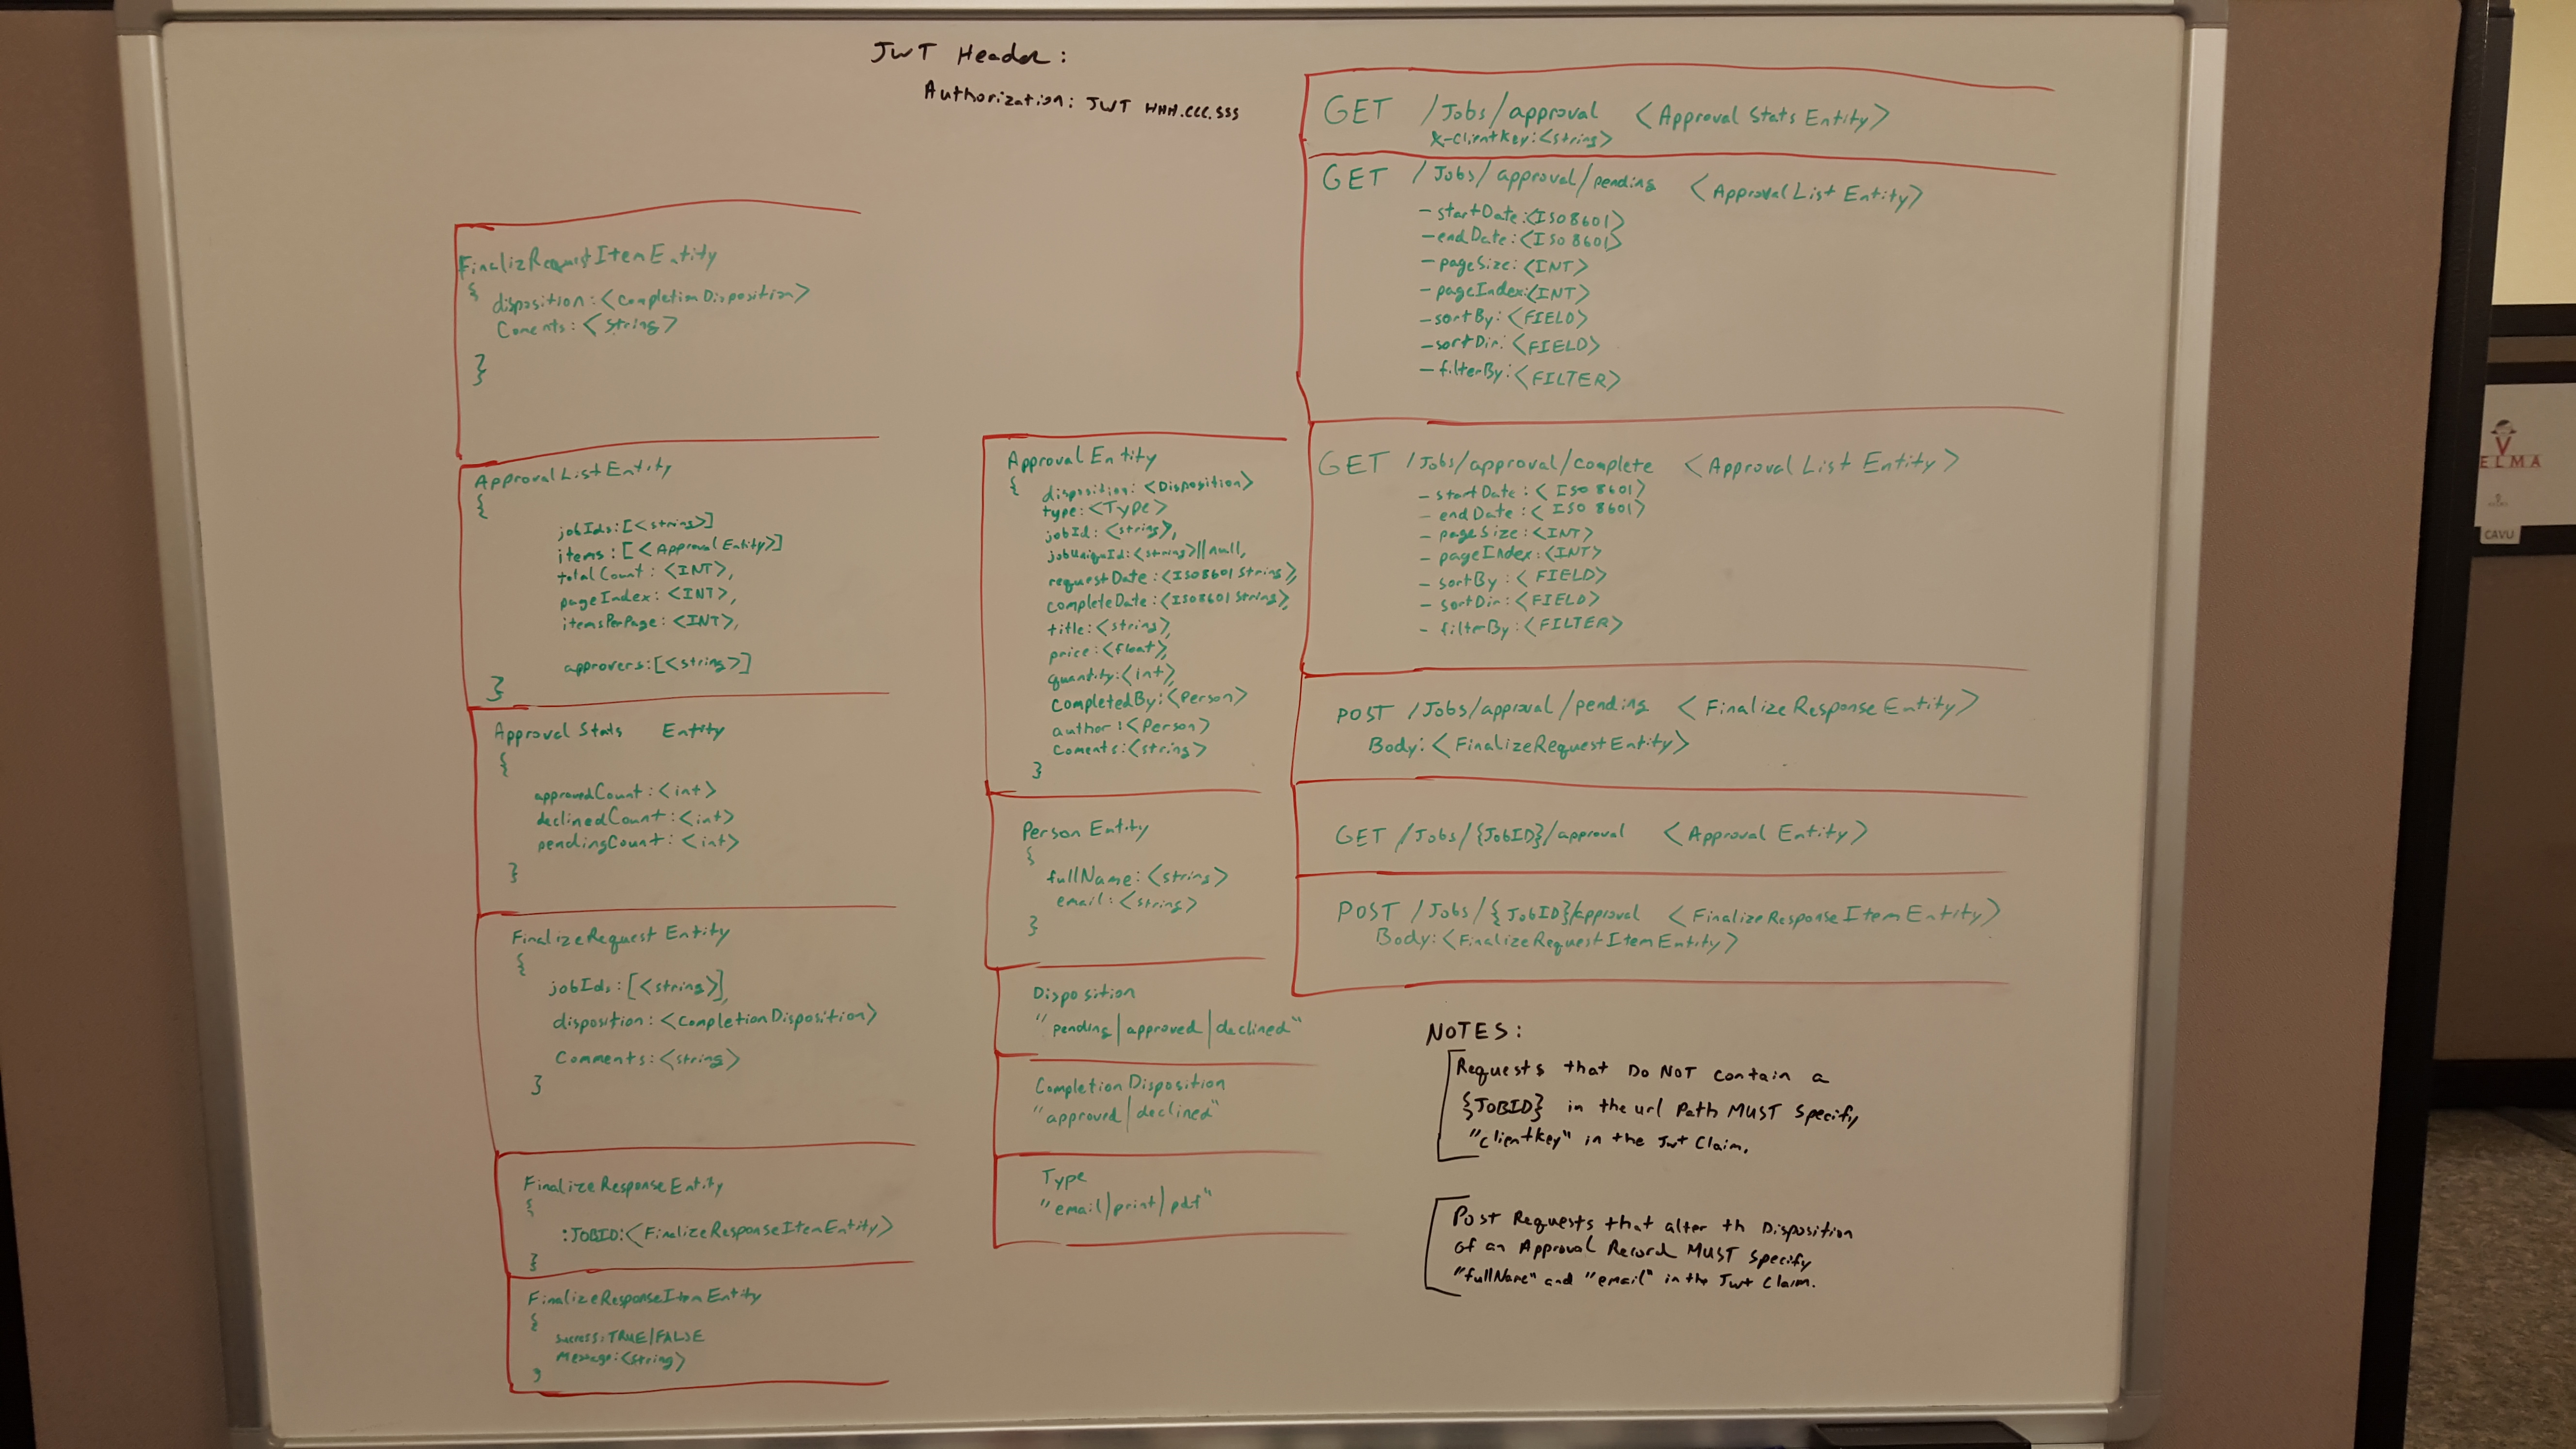 JWT Header:
Authorization: JWT HHH.CCC.SSS
FinalizRequestItemEntity
{
disposition:<CompletionDisposition>
Coments:<String>
}
ApprovalListEntity
{
jobIds:[<string>]
items:[<ApprovalEntity>]
totalCount:<INT>,
pageIndex:<INT>,
itemsPerPage:<INT>,
approvers:[<string>]
}
Approval Stats Entity
{
approvedCount:<int>
declinedCount:<int>
pendingCount:<int>
}
FinalizeRequest Entity
{
jobIds:[<string>],
disposition:<CompletionDisposition>
Comments:<string>
}
FinalizeResponseEntity
{
:JOBID:<FinalizeResponseItemEntity>
}
FinalizeResponseItemEntity
{
success:TRUE|FALSE
Message:<string>
}
Approval Entity
{
disposition:<Disposition>
type:<Type>
jobId:<string>,
jobUniqueId:<string>||null,
requestDate:<ISO8601 String>,
completeDate:<ISO8601 String>,
title:<string>,
price:<float>,
quantity:<int>,
completedBy:<Person>
author:<Person>
Coments:<string>
}
Person Entity
{
fullName:<string>
email:<string>
}
Disposition
"pending|approved|declined"
Completion Disposition
"approved|declined"
Type
"email|print|pdf"
GET /Jobs/approval <Approval Stats Entity>
X-ClientKey:<string>
GET /Jobs/approval/pending <Approval List Entity>
- startDate:<ISO8601>
- endDate:<ISO 8601>
- pageSize:<INT>
- pageIndex:<INT>
- sortBy:<FIELD>
- sortDir:<FIELD>
- filterBy:<FILTER>
GET /Jobs/approval/complete <Approval List Entity>
- startDate:< ISO 8601>
- endDate:< ISO 8601>
- pageSize:<INT>
- pageIndex:<INT>
- sortBy:< FIELD>
- sortDir:<FIELD>
- filterBy:<FILTER>
POST /Jobs/approval/pending <FinalizeResponseEntity>
Body:<FinalizeRequestEntity>
GET /Jobs/{JobID}/approval <Approval Entity>
POST /Jobs/{JobID}/approval <FinalizeResponseItemEntity>
Body:<FinalizeRequestItemEntity>
NOTES:
Requests that Do NOT contain a
{JOBID} in the url Path MUST Specify
"clientkey" in the Jwt Claim.
Post Requests that alter th Disposition
of an Approval Record MUST Specify
"fullName" and "email" in the Jwt Claim.
VELMA
CAVU